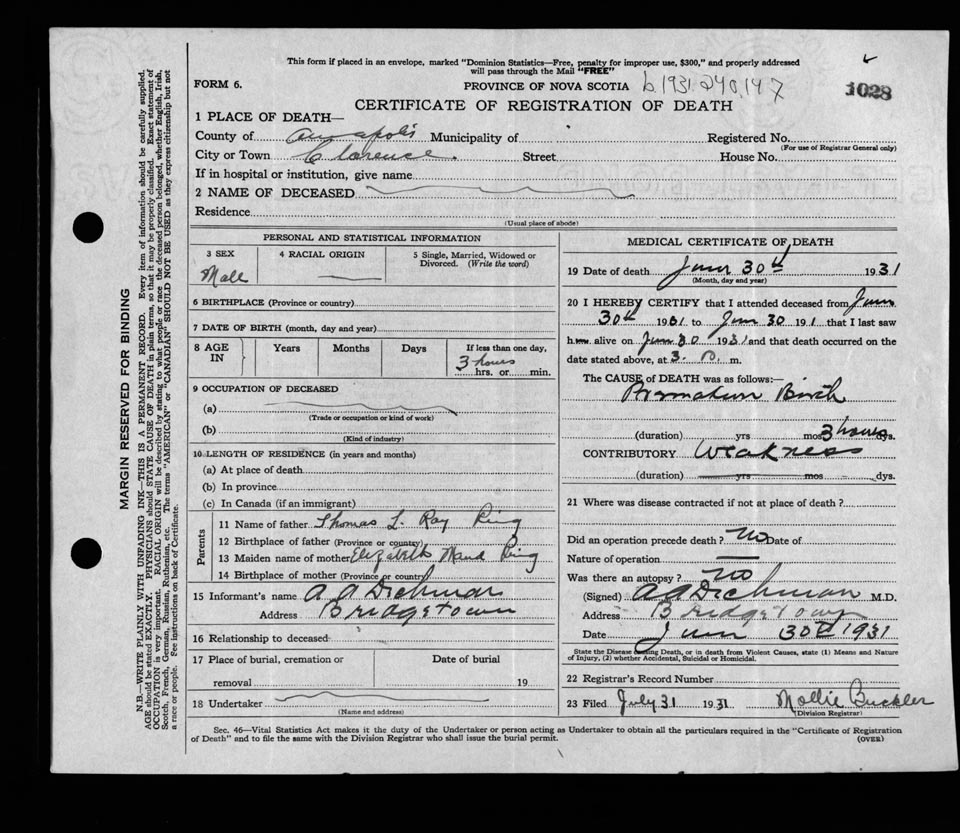 This form if placed in an envelope, marked "Dominion Statistics—Free, penalty for improper use, $300," and properly addressed
will pass through the Mail "FREE"
FORM 6.
PROVINCE OF NOVA SCOTIA
b 1931.240,147
1028
CERTIFICATE OF REGISTRATION OF DEATH
1 PLACE OF DEATH—
County of Annapolis Municipality of Registered No.
(For use of Registrar General only)
City or Town Clarence. Street House No.
If in hospital or institution, give name
2 NAME OF DECEASED
Residence
(Usual place of abode)
PERSONAL AND STATISTICAL INFORMATION
3 SEX 4 RACIAL ORIGIN 5 Single, Married, Widowed or
Divorced. (Write the word)
Male
6 BIRTHPLACE (Province or country)
7 DATE OF BIRTH (month, day and year)
8 AGE Years Months Days If less than one day,
IN 3 hours
hrs. or min.
9 OCCUPATION OF DECEASED
(a)
(Trade or occupation or kind of work)
(b)
(Kind of industry)
10 LENGTH OF RESIDENCE (in years and months)
(a) At place of death
(b) In province
(c) In Canada (if an immigrant)
Parents
11 Name of father Thomas L. Ray King
12 Birthplace of father (Province or country)
13 Maiden name of mother Elizabeth Maud King
14 Birthplace of mother (Province or country)
15 Informant's name A A Dechman
Address Bridgetown
16 Relationship to deceased
17 Place of burial, cremation or Date of burial
removal 19
18 Undertaker
(Name and address)
MEDICAL CERTIFICATE OF DEATH
19 Date of death June 30th 1931
(Month, day and year)
20 I HEREBY CERTIFY that I attended deceased from June
30th 1931 to June 30 191 that I last saw
him alive on June 30 1931 and that death occurred on the
date stated above, at 3. P. m.
The CAUSE of DEATH was as follows:—
Premature Birth
(duration) yrs mos 3 hours dys.
CONTRIBUTORY Weakness
(duration) yrs mos dys.
21 Where was disease contracted if not at place of death?
Did an operation precede death? No Date of
Nature of operation
Was there an autopsy? No
(Signed) A A Dechman M.D.
Address Bridgetown
Date June 30th 1931
State the Disease Causing Death, or in death from Violent Causes, state (1) Means and Nature
of Injury, (2) whether Accidental, Suicidal or Homicidal.
22 Registrar's Record Number
23 Filed July 31 1931 Mollie Buckler
(Division Registrar)
Sec. 46—Vital Statistics Act makes it the duty of the Undertaker or person acting as Undertaker to obtain all the particulars required in the "Certificate of Registration
of Death" and to file the same with the Division Registrar who shall issue the burial permit. (OVER)
MARGIN RESERVED FOR BINDING
N.B.—WRITE PLAINLY WITH UNFADING INK—THIS IS A PERMANENT RECORD. Every item of information should be carefully supplied.
AGE should be stated EXACTLY. PHYSICIANS should STATE CAUSE OF DEATH in plain terms, so that it may be properly classified. Exact statement of
OCCUPATION is very important. RACIAL ORIGIN will be described by stating to what people or race the deceased person belonged, whether English, Irish,
Scotch, French, German, Russian, Ruthenian, etc. The terms "AMERICAN" or "CANADIAN" SHOULD NOT BE USED as they express citizenship but not
a race or people. See instructions on back of Certificate.